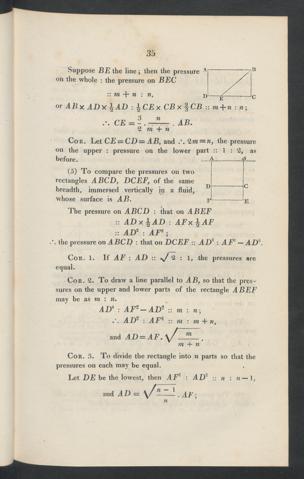 35
Suppose BE the line; then the pressure
on the whole : the pressure on BEC
:: m + n : n,
or AB × AD × 1/2 AD : 1/2 CE × CB × 2/3 CB :: m + n : n;
∴ CE = 3/2 · n/(m + n) · AB.
A B
D E C
COR. Let CE = CD = AB, and ∴ 2m = n, the pressure
on the upper : pressure on the lower part :: 1 : 2, as
before.
(5) To compare the pressures on two
rectangles ABCD, DCEF, of the same
breadth, immersed vertically in a fluid,
whose surface is AB.
A B
D C
F E
The pressure on ABCD : that on ABEF
:: AD × 1/2 AD : AF × 1/2 AF
:: AD² : AF²;
∴ the pressure on ABCD : that on DCEF :: AD² : AF² − AD².
COR. 1. If AF : AD :: √2 : 1, the pressures are
equal.
COR. 2. To draw a line parallel to AB, so that the pres-
sures on the upper and lower parts of the rectangle ABEF
may be as m : n.
AD² : AF² − AD² :: m : n;
∴ AD² : AF² :: m : m + n,
and AD = AF · √(m/(m + n)).
COR. 3. To divide the rectangle into n parts so that the
pressures on each may be equal.
Let DE be the lowest, then AF² : AD² :: n : n − 1,
and AD = √((n − 1)/n) · AF;